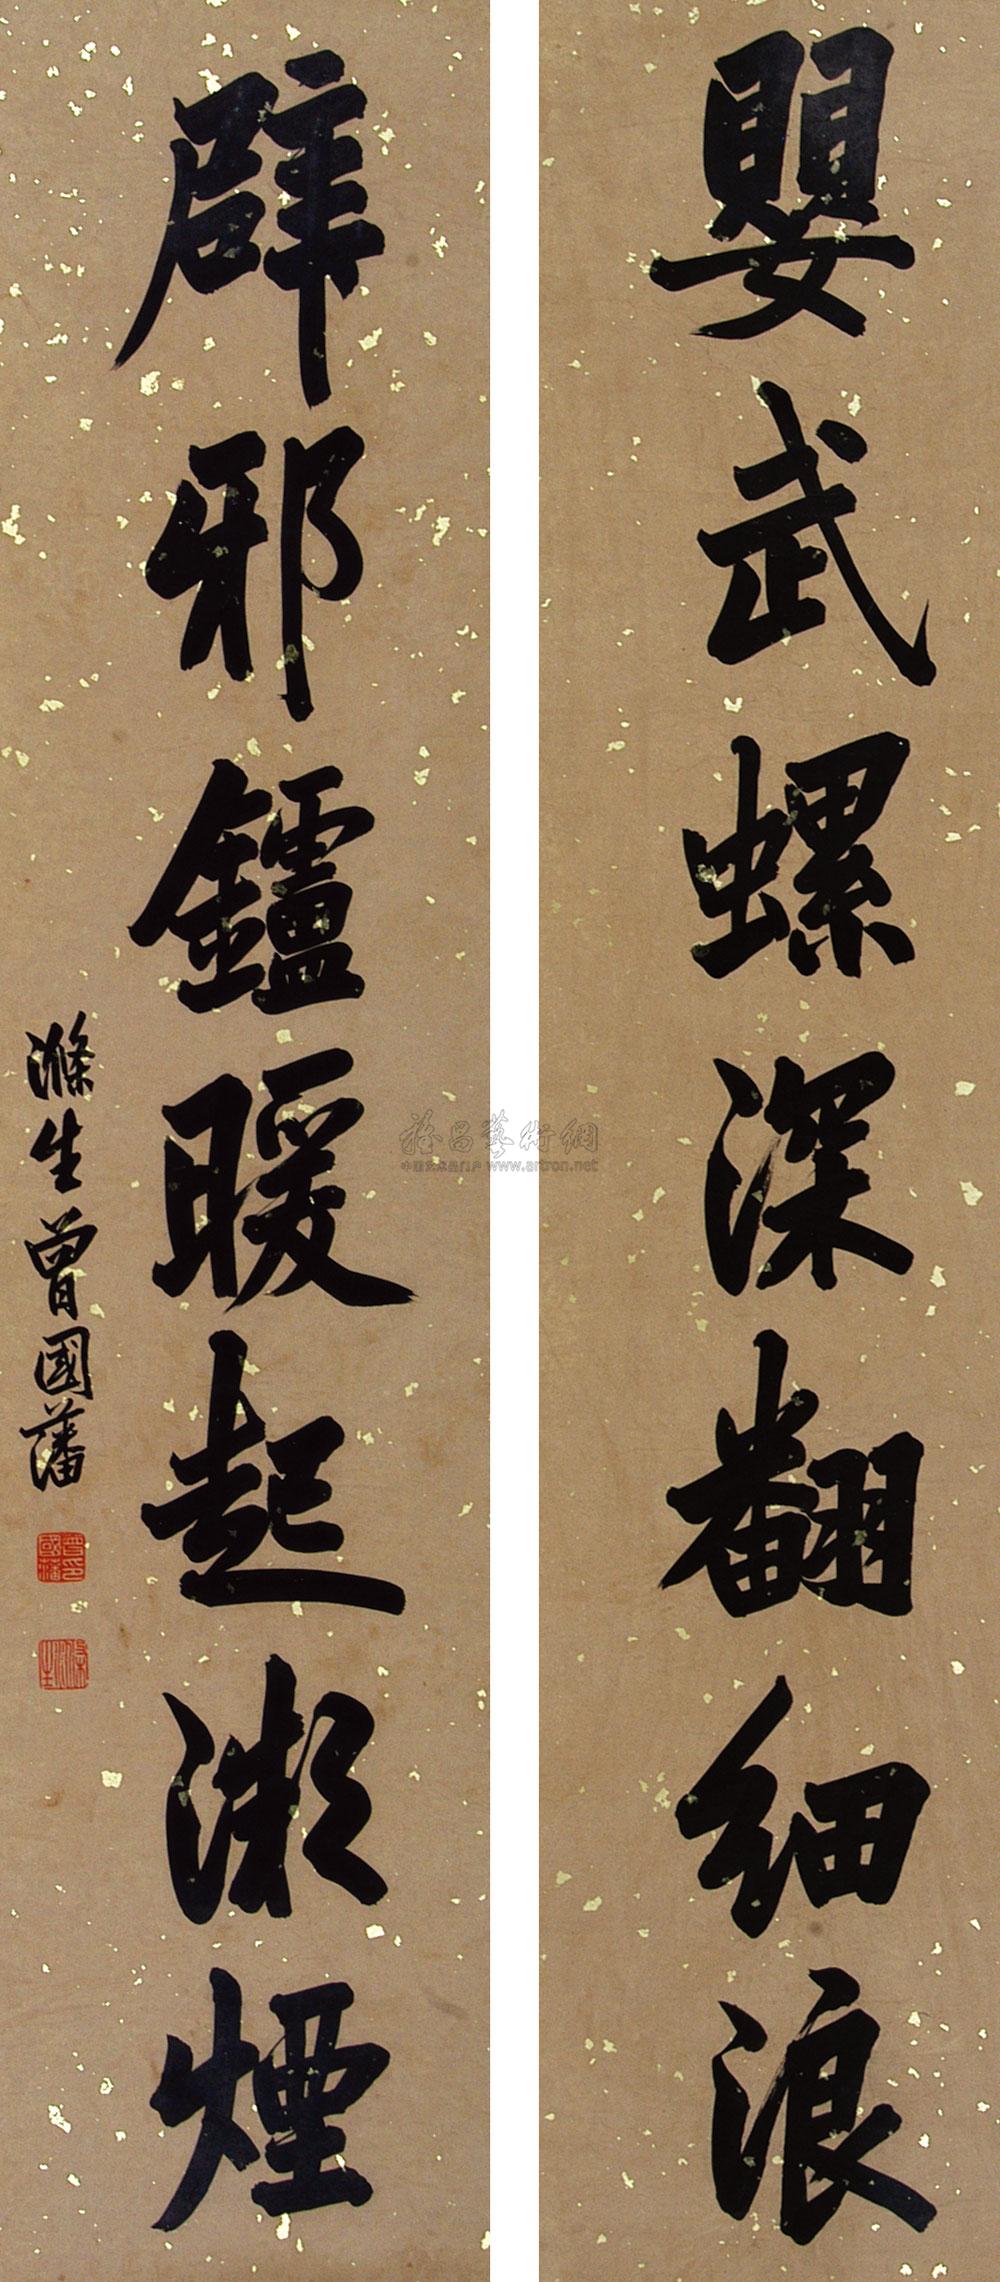 嬰武螺深翻細浪
辟邪鑪暖起微煙
滌生曾國藩
曾國藩印
滌生
雅昌藝術網
中国艺术品门户 www.artron.net